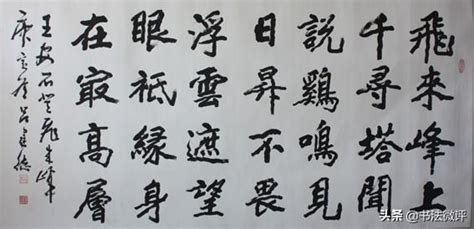 飛來峰上
千尋塔聞
說鷄鳴見
日昇不畏
浮雲遮望
眼祗緣身
在最高層
王安石登飛来峰
庚寅
头条 @书法微评